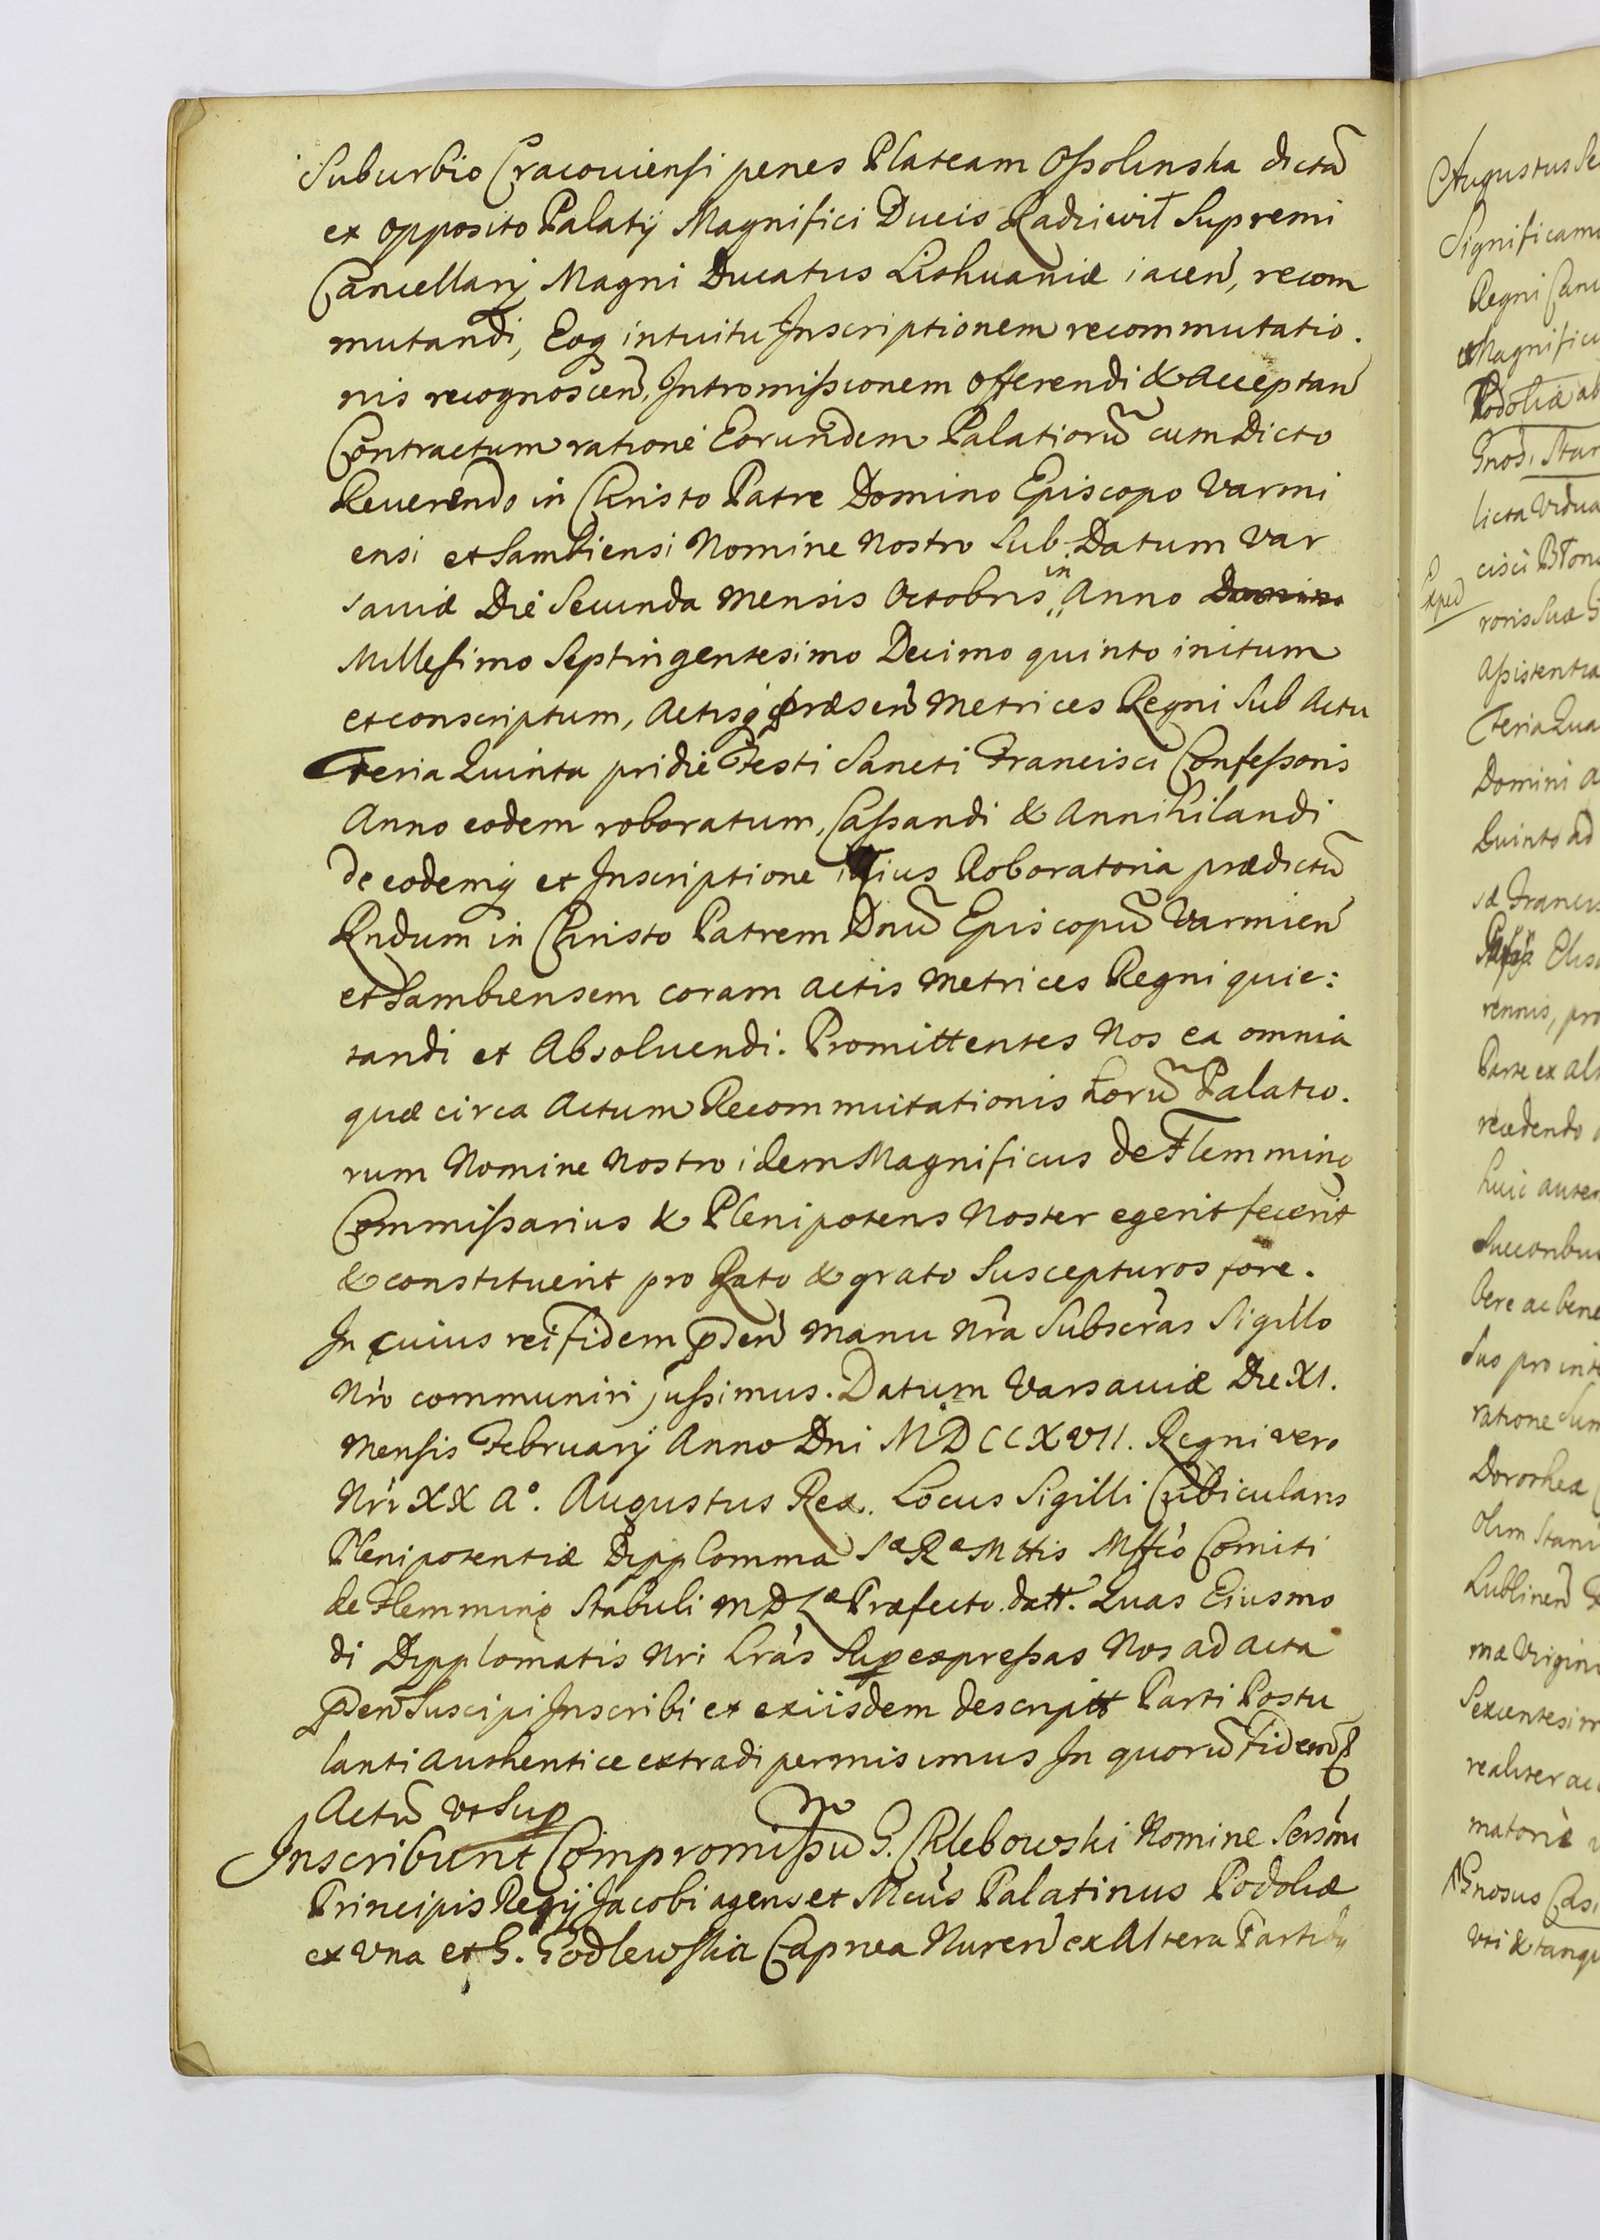 Suburbio Cracouiensi penes Plateam Ossolinska dictã
ex opposito Palatij Magnifici Ducis Radziwił Supremi
Cancellarij Magni Ducatus Lithuaniæ iacen̄, recom
mutandi, Eoq intuitu Inscriptionem recommutatio.
nis recognoscen̄, Intromissionem offerendi & acceptan̄
Contractum ratione Eorundem Palatiorũ cum dicto
Reuerendo in Christo Patre Domino Episcopo Varmi
ensi et Sambiensi Nomine Nostro Sub Datum Var
sauiæ Die Secunda Mensis Octobris in Anno Domino
Millesimo Septingentesimo Decimo quinto initum
et conscriptum, Actisq præsen̄ Metrices Regni Sub Actu
Feria Quinta pridie Festi Sancti Francisci Confessoris
Anno eodem roboratum, Cassandi & Annihilandi
De eodemq et Inscriptione illius Roboratoria prædictũ
Rndum in Christo Patrem Dnũ Episcopũ Varmien̄
et Sambiensem coram actis Metrices Regni quie:
tandi et Absoluendi. Promittentes Nos ea omnia
quæ circa Actum Recommutationis horũ Palatio.
rum Nomine Nostro idem Magnificus de Flemming
Commissarius & Plenipotens Noster egerit fecerit
& constituerit pro Rato & grato Suscepturos fore.
In cuius rei fidem p̃sen̄ Manu Nrã Subscrãs Sigillo
Nrõ communiri jussimus. Datum Varsauiæ Die XI.
Mensis February Anno Dni MDCCXVII. Regni vero
Nri XX Aº. Augustus Rex. Locus Sigilli Cubicularis
Plenipotentiæ Dypplomma Sæ Ræ Mttis Mffco Comiti
de Flemming Stabuli M D Læ Præfecto datt. Quas Eiusmo
di Dypplomatis Nri Lrãs Sup expressas Nos ad acta
p̃sen̄ Suscipi Inscribi et exiisdem descriptt Parti Postu
lanti authentice extradi permisimus In quorũ Fidem
Actũ vt Sup
Inscribunt Compromissũ G. Chlebowski Nomine Sersm̃i
Principis Regij Jacobi agens et Mcus Palatinus Podoliæ
ex Una et G. Godlewska Capnea Nuren̄ ex Altera Partibq
Augustus Se
Significamu
Regni Canc
Magnificu
Podoliæ ab
licta Vidua
Exped
roris Suæ G
Assistentia
Feria Qua
Domini A
Quinto ad
sæ Francis
rennis, pro
Parte ex Alt
recedendo
huic autem
Successoribus
bere ac bene
Suo pro inte
ratione Sum
Dorothea
olim Stani
Lublinen̄
mæ Virgini
Sexcentesim
realiter ac
matorie
Gnosus Casi
Vti & tanqu